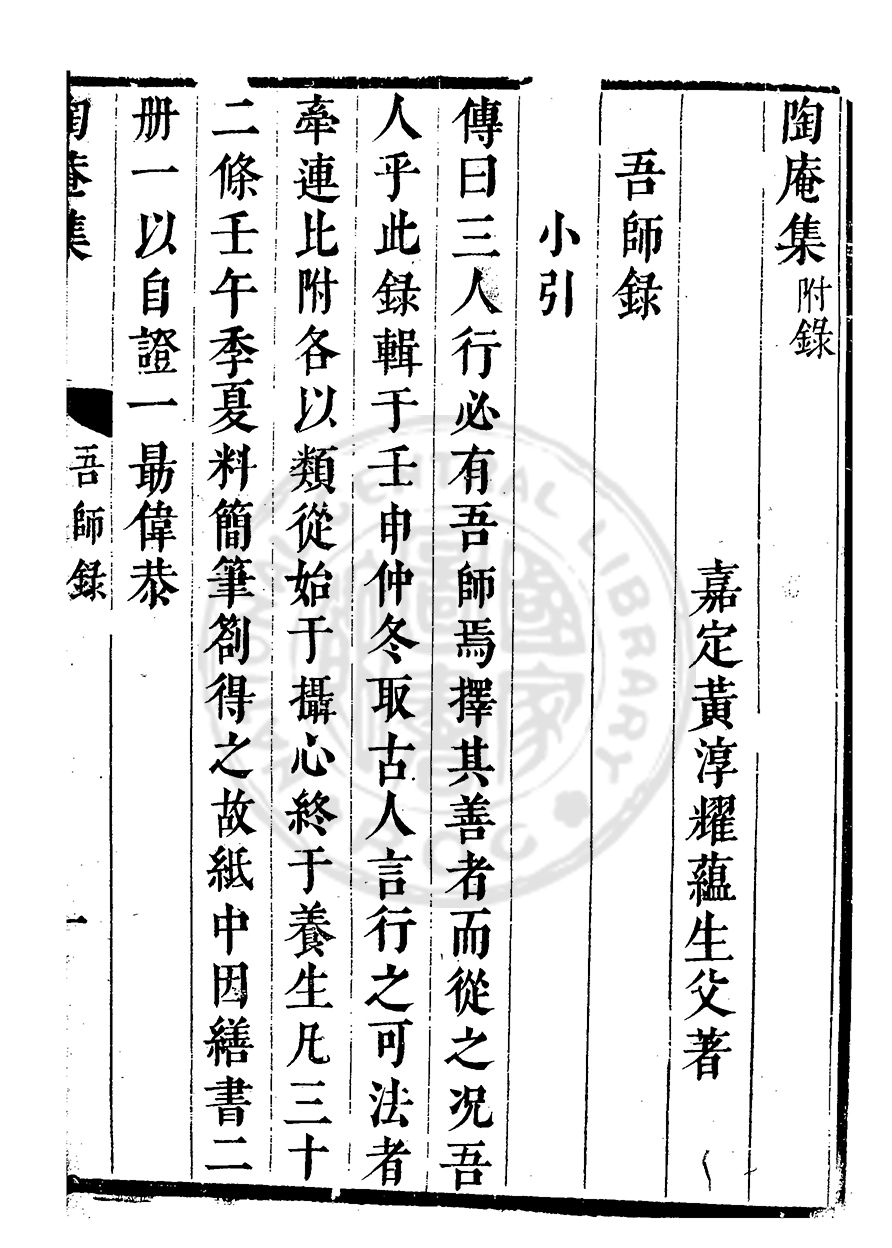 陶庵集附錄
嘉定黃淳耀蘊生父著
吾師錄
小引
傳曰三人行必有吾師焉擇其善者而從之况吾
人乎此錄輯于壬申仲冬取古人言行之可法者
牽連比附各以類從始于攝心終于養生凡三十
二條壬午季夏料簡筆劄得之故紙中因繕書二
册一以自證一勗偉恭
陶庵集 吾師錄 一
CENTRAL LIBRARY